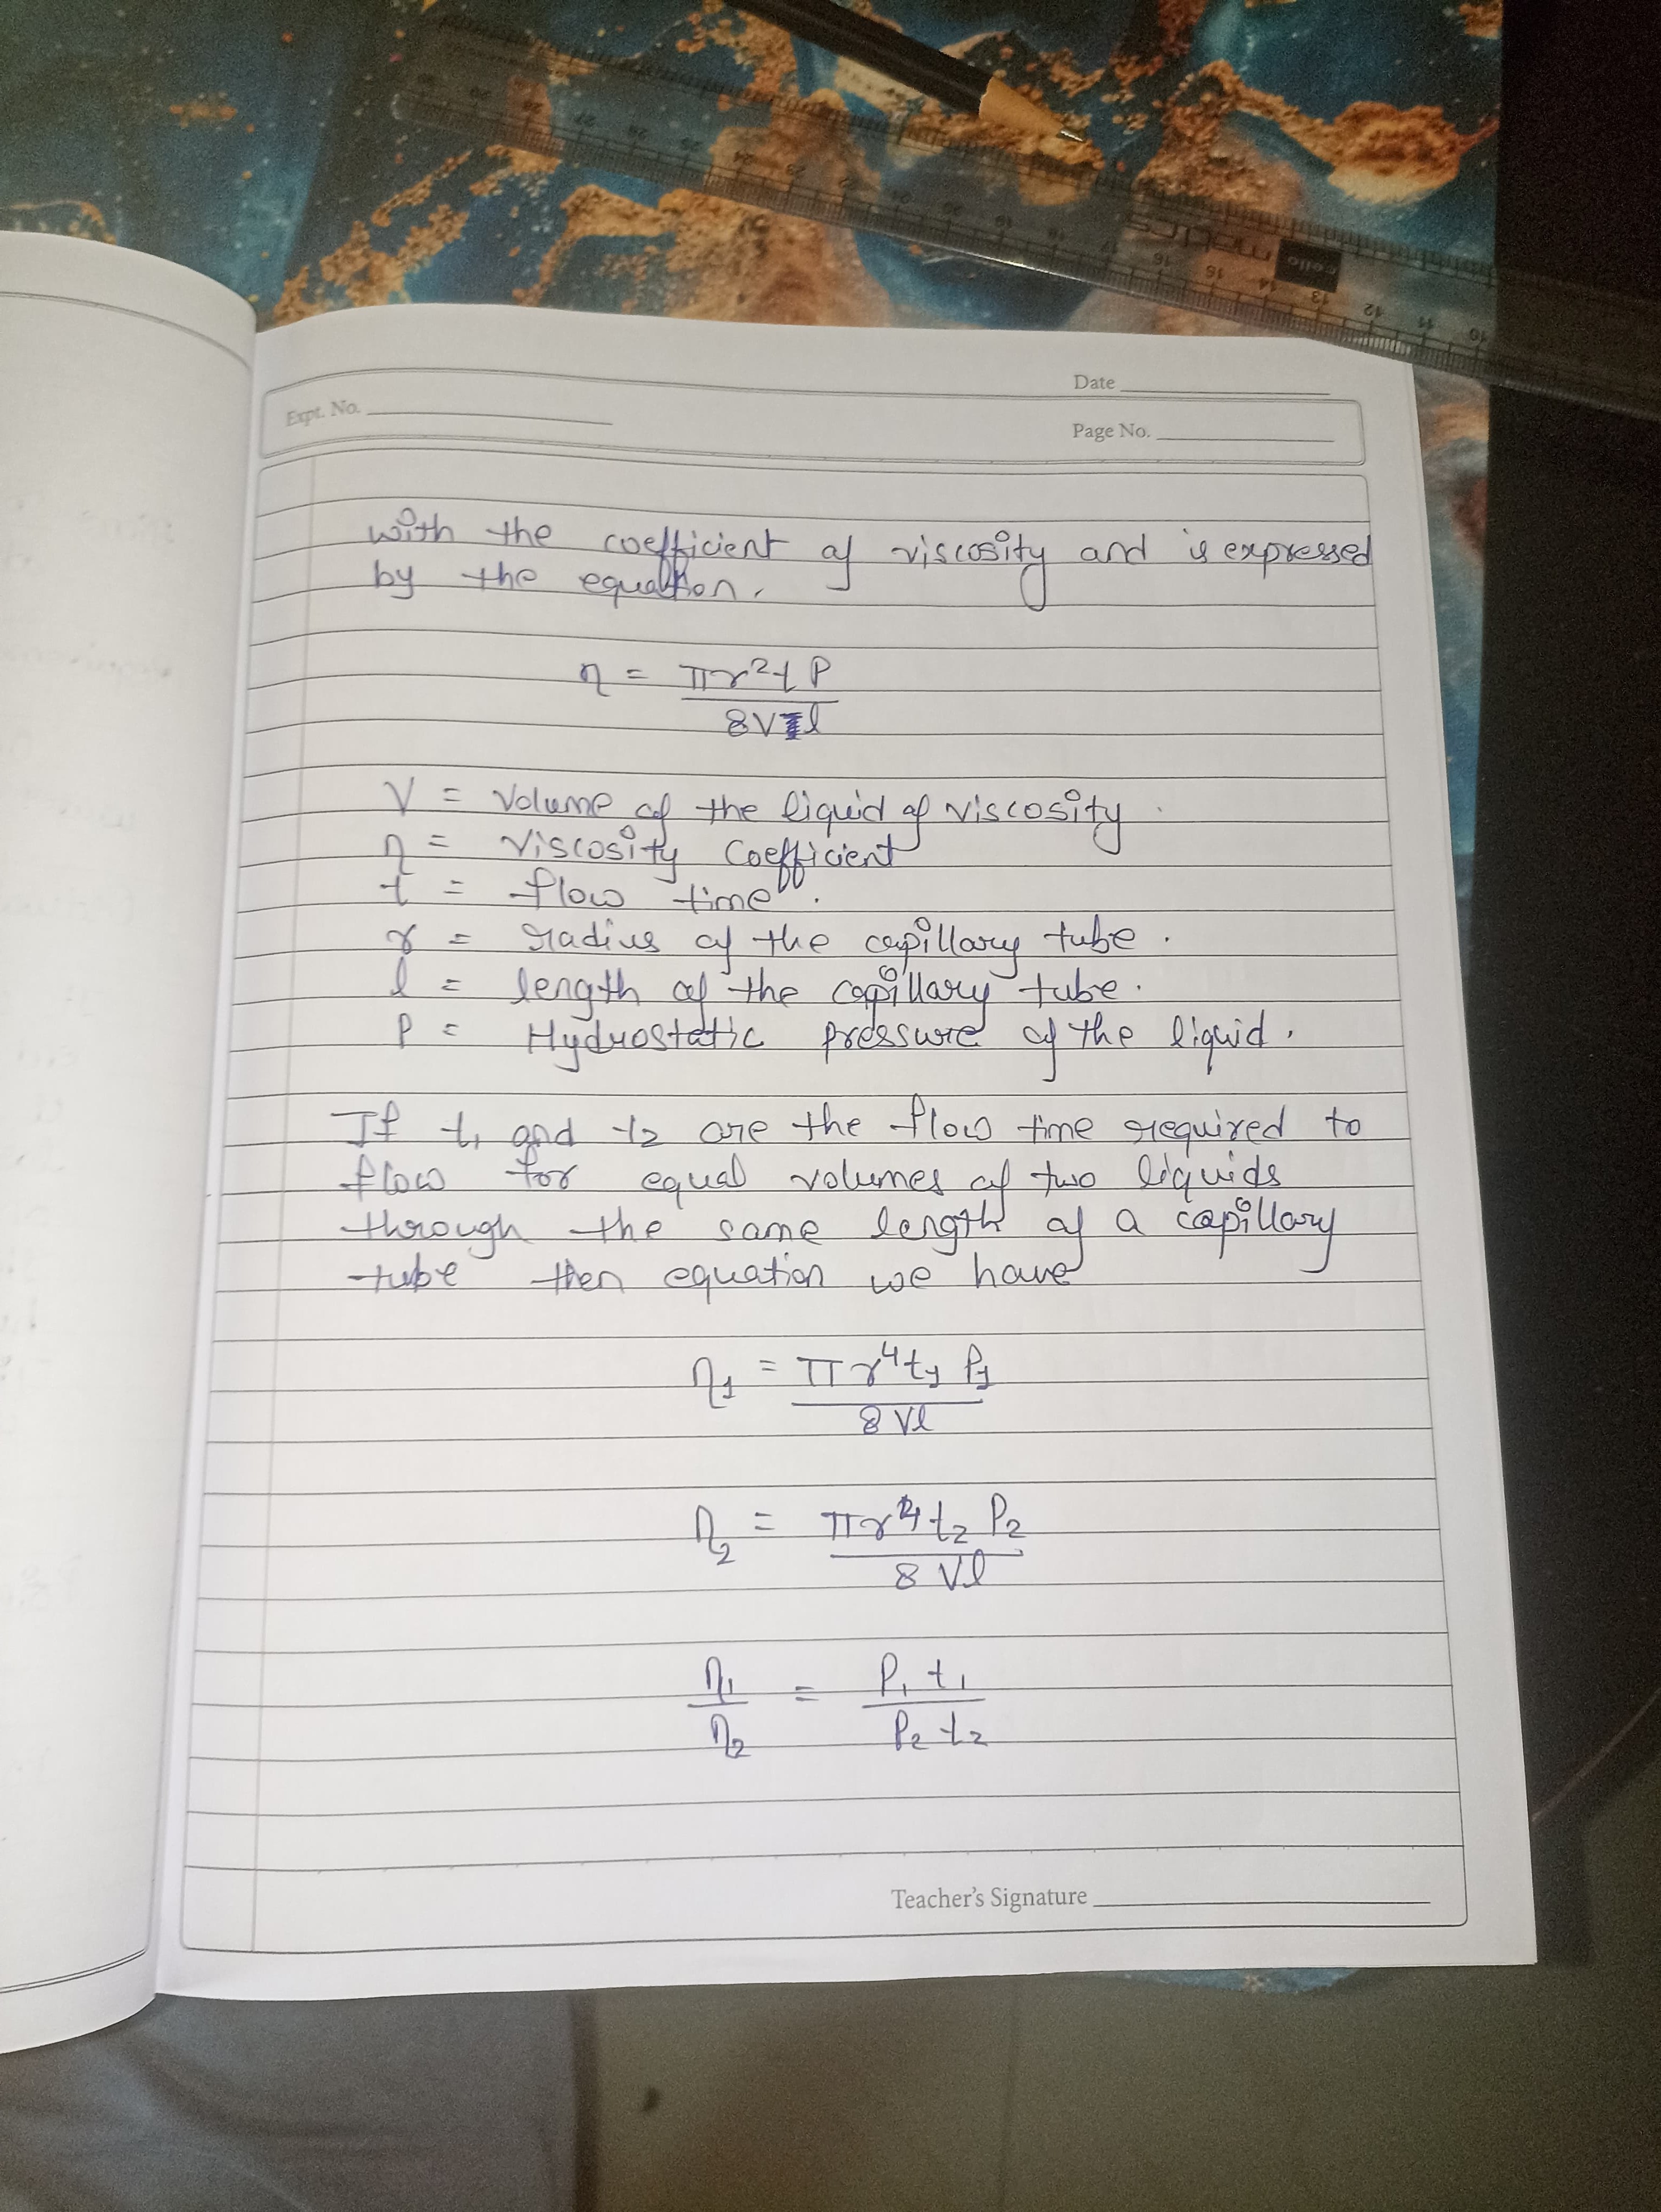 Date
Expt. No.
Page No.
with the coefficient of viscosity and is expressed
by the equation.
η = πr²tP
8Vl
V = Volume of the liquid of viscosity.
η = Viscosity Coefficient
t = flow time.
r = radius of the capillary tube.
l = length of the capillary tube.
P = Hydrostatic pressure of the liquid.
If t₁ and t₂ are the flow time required to
flow for equal volumes of two liquids
through the same length of a capillary
tube then equation we have
η₁ = πr⁴t₁ P₁
8 Vl
η₂ = πr⁴t₂ P₂
8 Vl
η₁ = P₁ t₁
η₂ P₂ t₂
Teacher's Signature
cello